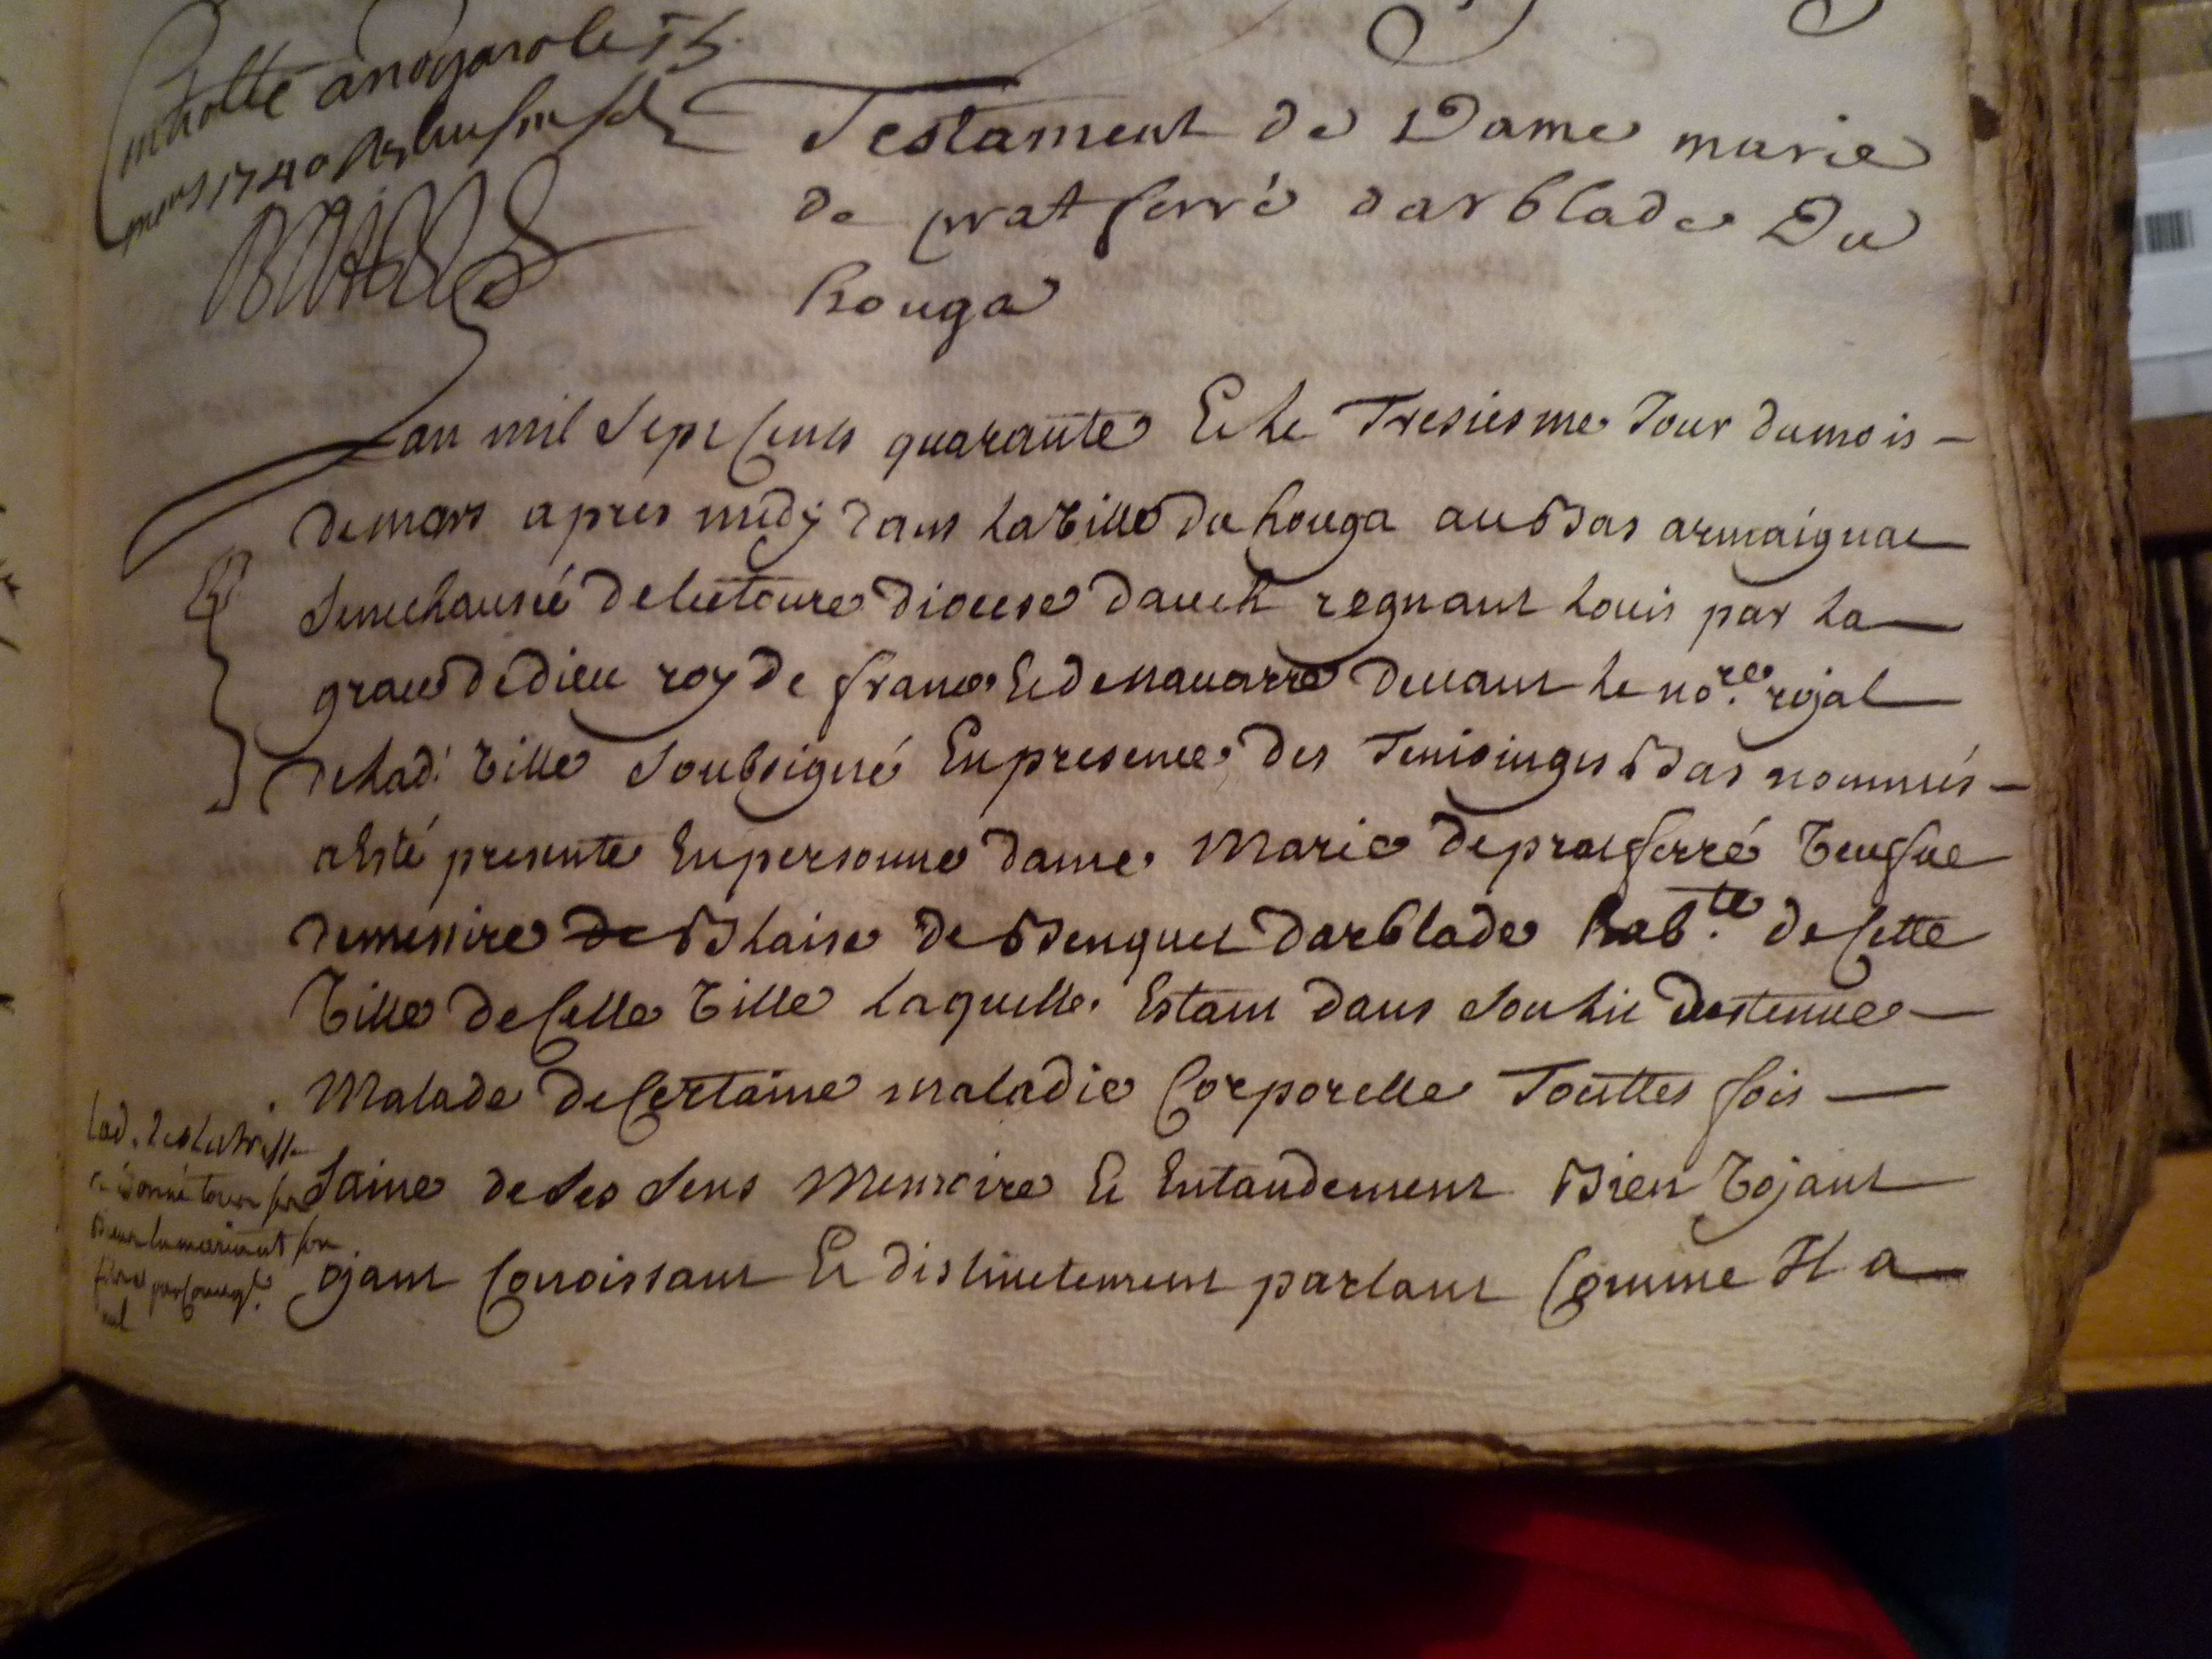 Controllé a nogaro le 15
mars 1740
Testament de Dame marie
de pratferré darblade Du
houga
Lan mil Sept Cents quarante Et le Tresiesme Jour du mois
de mars apres midy dans la Ville du houga au Bas armaignac
Senechausée de lectoure diocese dauch regnant Louis par la
grace de dieu roy de france Et de nauarre deuant le no.re royal
de lad. Ville Soubsigné En presence des Temoings Bas nommés
a Esté presente En personne dame Marie de pratferré Veufue
de messire de Blaise de Benquet darblade hab.te de Cette
Ville de Celle Ville laquelle Estant dans Son lit destenue
Malade de Certaine maladie Corporelle Touttes fois
Saine de Ses Sens Memoire Et Entandement Bien Voyant
oyant Conoissant Et distinctement parlant Comme Il a
lad. testatrisse
a donné tous ses
Biens en mariant son
fils par conseq.t
nul